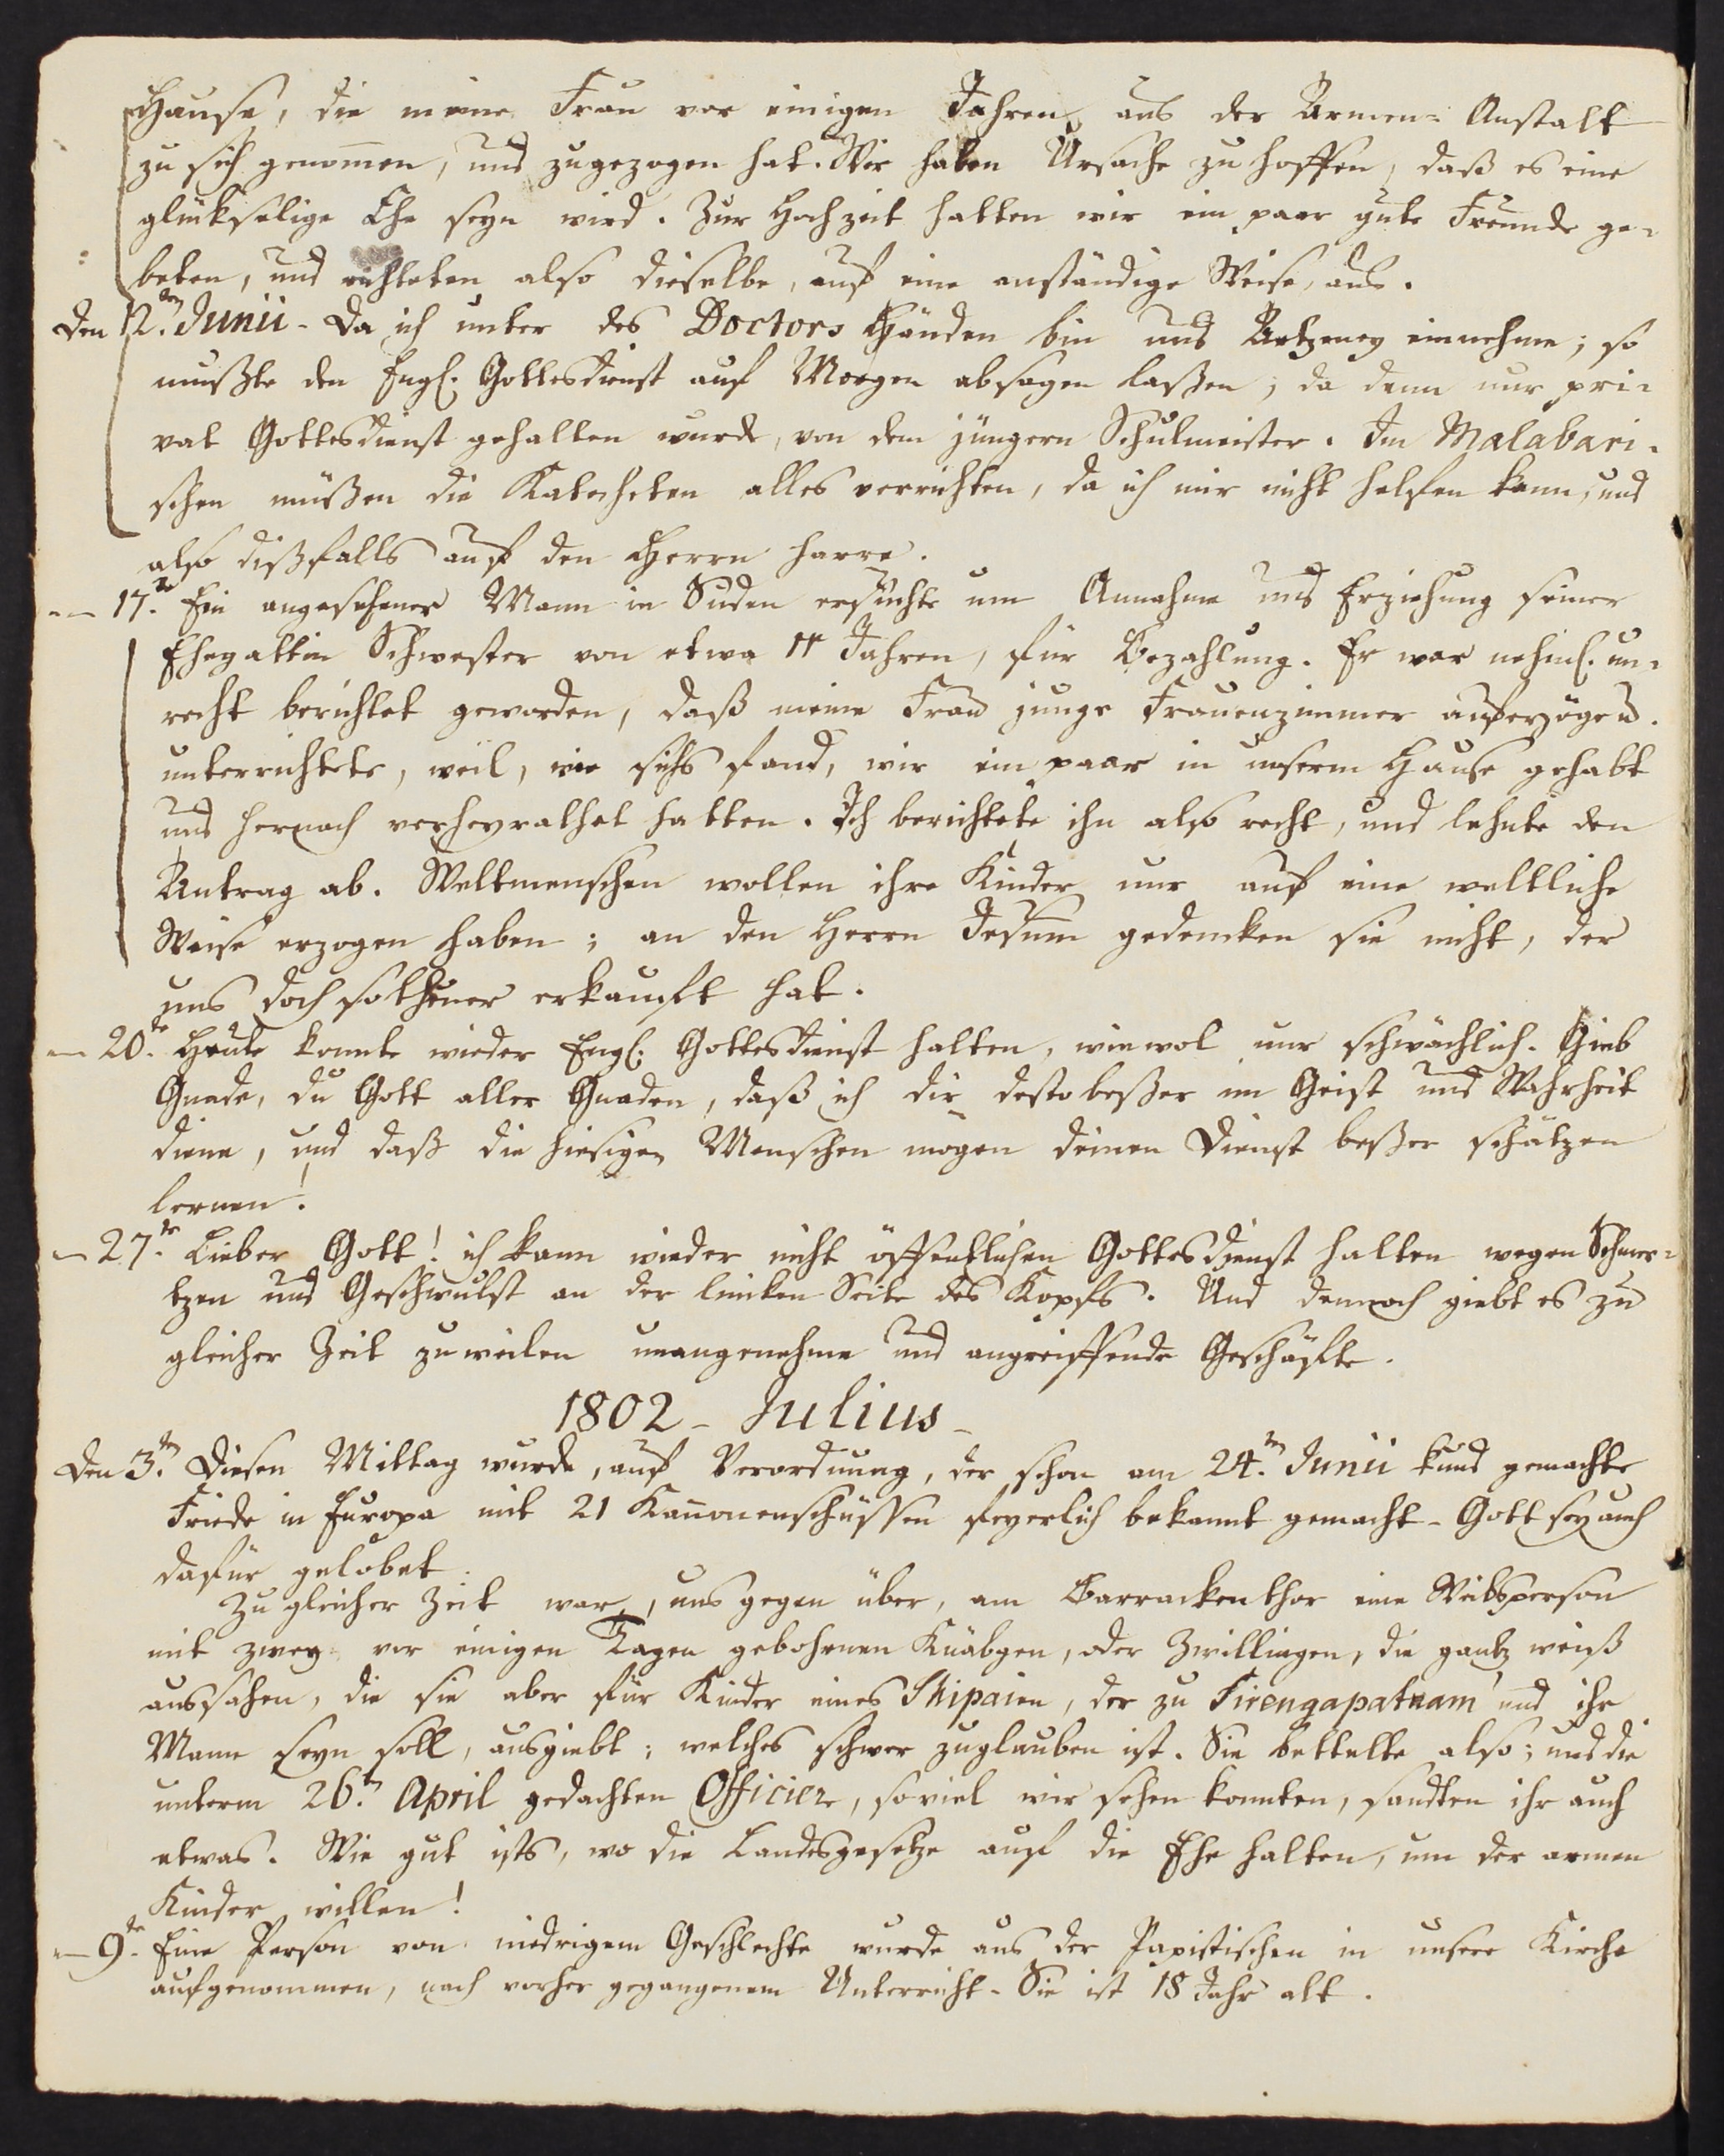 Hause, die meine Frau vor einigen Jahren aus der Armen- Anstalt
zu sich genommen, und zugezogen hat. Wir haben Ursache zu hoffen, daß es eine
glükselige Ehe seyn wird. Zur Hochzeit hatten wir ein paar gute Freunde ge-
beten, und richteten also dieselbe, auf eine anständige Weise, aus.
Den 12ten Junii - Da ich unter des Doctors Händen bin und Artzeney einnehme; so
mußte den Engl. Gottesdienst auf Morgen absagen laßen; da denn nur pri-
vat Gottesdienst gehalten wurde, von dem jüngern Schulmeister. Im Malabari-
schen müßen die Katecheten alles verrichten, da ich mir nicht helfen kann, und
also dißfalls auf den Herrn harre.
— 17te Ein angesehener Mann in Suden ersuchte um Annahme und Erziehung seiner
Ehegattin Schwester von etwa 11 Jahren, für Bezahlung. Er war nehml. un-
recht berichtet geworden, daß meine Frau junge Frauenzimmer auferzöge u.
unterrichtete, weil, wie sichs fand, wir ein paar in unserm Hause gehabt
und hernach verheyrathet hatten. Ich berichtete ihn also recht, und lehnte den
Antrag ab. Weltmenschen wollen ihre Kinder nur auf eine weltliche
Weise erzogen haben; an den Herrn Jesum gedencken sie nicht, der
uns doch so theuer erkauft hat.
— 20te Heute konnte wieder Engl. Gottesdienst halten, wiewol nur schwächlich. Gieb
Gnade, du Gott aller Gnaden, daß ich dir desto beßer im Geist und Wahrheit
diene, und daß die hiesigen Menschen mögen deinen Dienst beßer schätzen
lernen!
— 27te Lieber Gott! ich kann wieder nicht öffentlichen Gottesdienst halten wegen Schmer-
tzen und Geschwulst an der lincken Seite des Kopfs. Und dennoch giebt es zu
gleicher Zeit zuweilen unangenehme und angreiffende Geschäfte.
1802 - Julius -
Den 3ten Diesen Mittag wurde, auf Verordnung, der schon am 24ten Junii kund gemachte
Friede in Europa mit 21 Kanonenschüssen feyerlich bekannt gemacht - Gott sey auch
dafür gelobet.
Zu gleicher Zeit war, uns gegen über, am Barrackenthor eine Weibsperson
mit zwey vor einigen Tagen gebohrnen Knäbgen, oder Zwillingen, die gantz weiß
aussahen, die sie aber für Kinder eines Shipaien, der zu Sirengapatnam und ihr
Mann seyn soll, ausgiebt; welches schwer zuglauben ist. Sie bettelte also; und die
unterm 26ten April gedachten Officier, soviel wir sehen konnten, sandten ihr auch
etwas. Wie gut ists, wo die Landesgesetze auf die Ehe halten, um der armen
Kinder willen!
— 9te Eine Person von niedrigem Geschlechte wurde aus der Papistischen in unsere Kirche
aufgenommen, nach vorher gegangenem Unterricht - Sie ist 18 Jahr alt.